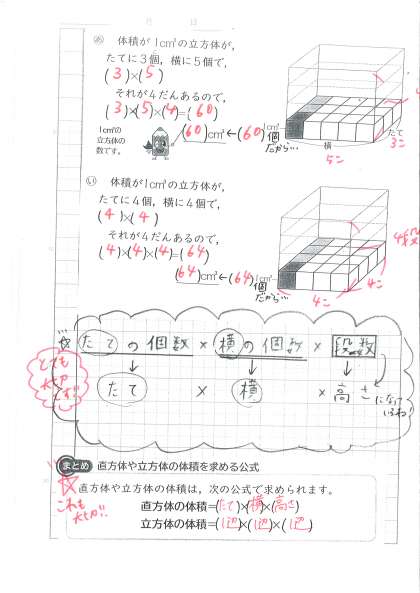 月 日
あ 体積が1cm³の立方体が,
たてに3個, 横に5個で,
(3)×(5)
それが4だんあるので,
(3)×(5)×(4)=(60)
1cm³の
立方体の
数です。
(60)cm³←(60)個
1cm³
だから…
たて
3こ
横
5こ
い 体積が1cm³の立方体が,
たてに4個, 横に4個で,
(4)×(4)
それが4だんあるので,
(4)×(4)×(4)=(64)
(64)cm³←(64)個
1cm³
だから…
4段
4こ
4こ
たての個数 × 横の個数 × 段数
たて × 横 × 高さ
になって
いるね!
とても
大切
です!!
まとめ 直方体や立方体の体積を求める公式
直方体や立方体の体積は, 次の公式で求められます。
これも
大切!!
直方体の体積=(たて)×(横)×(高さ)
立方体の体積=(1辺)×(1辺)×(1辺)